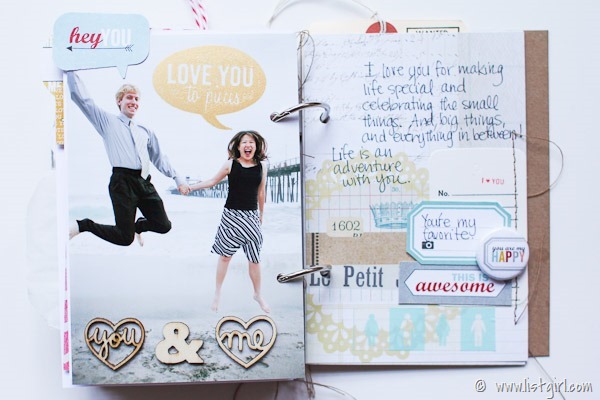 heyYOU
LOVE YOU
to pieces
you & me
WANTED
I love you for making
life special and
celebrating the small
things. And big things,
and everything in between!
Life is an
adventure
with you.
I ♥ YOU
No.
1602
You're my
favorite.
you are my
HAPPY
Le Petit J
THIS IS
awesome
© www.listgirl.com